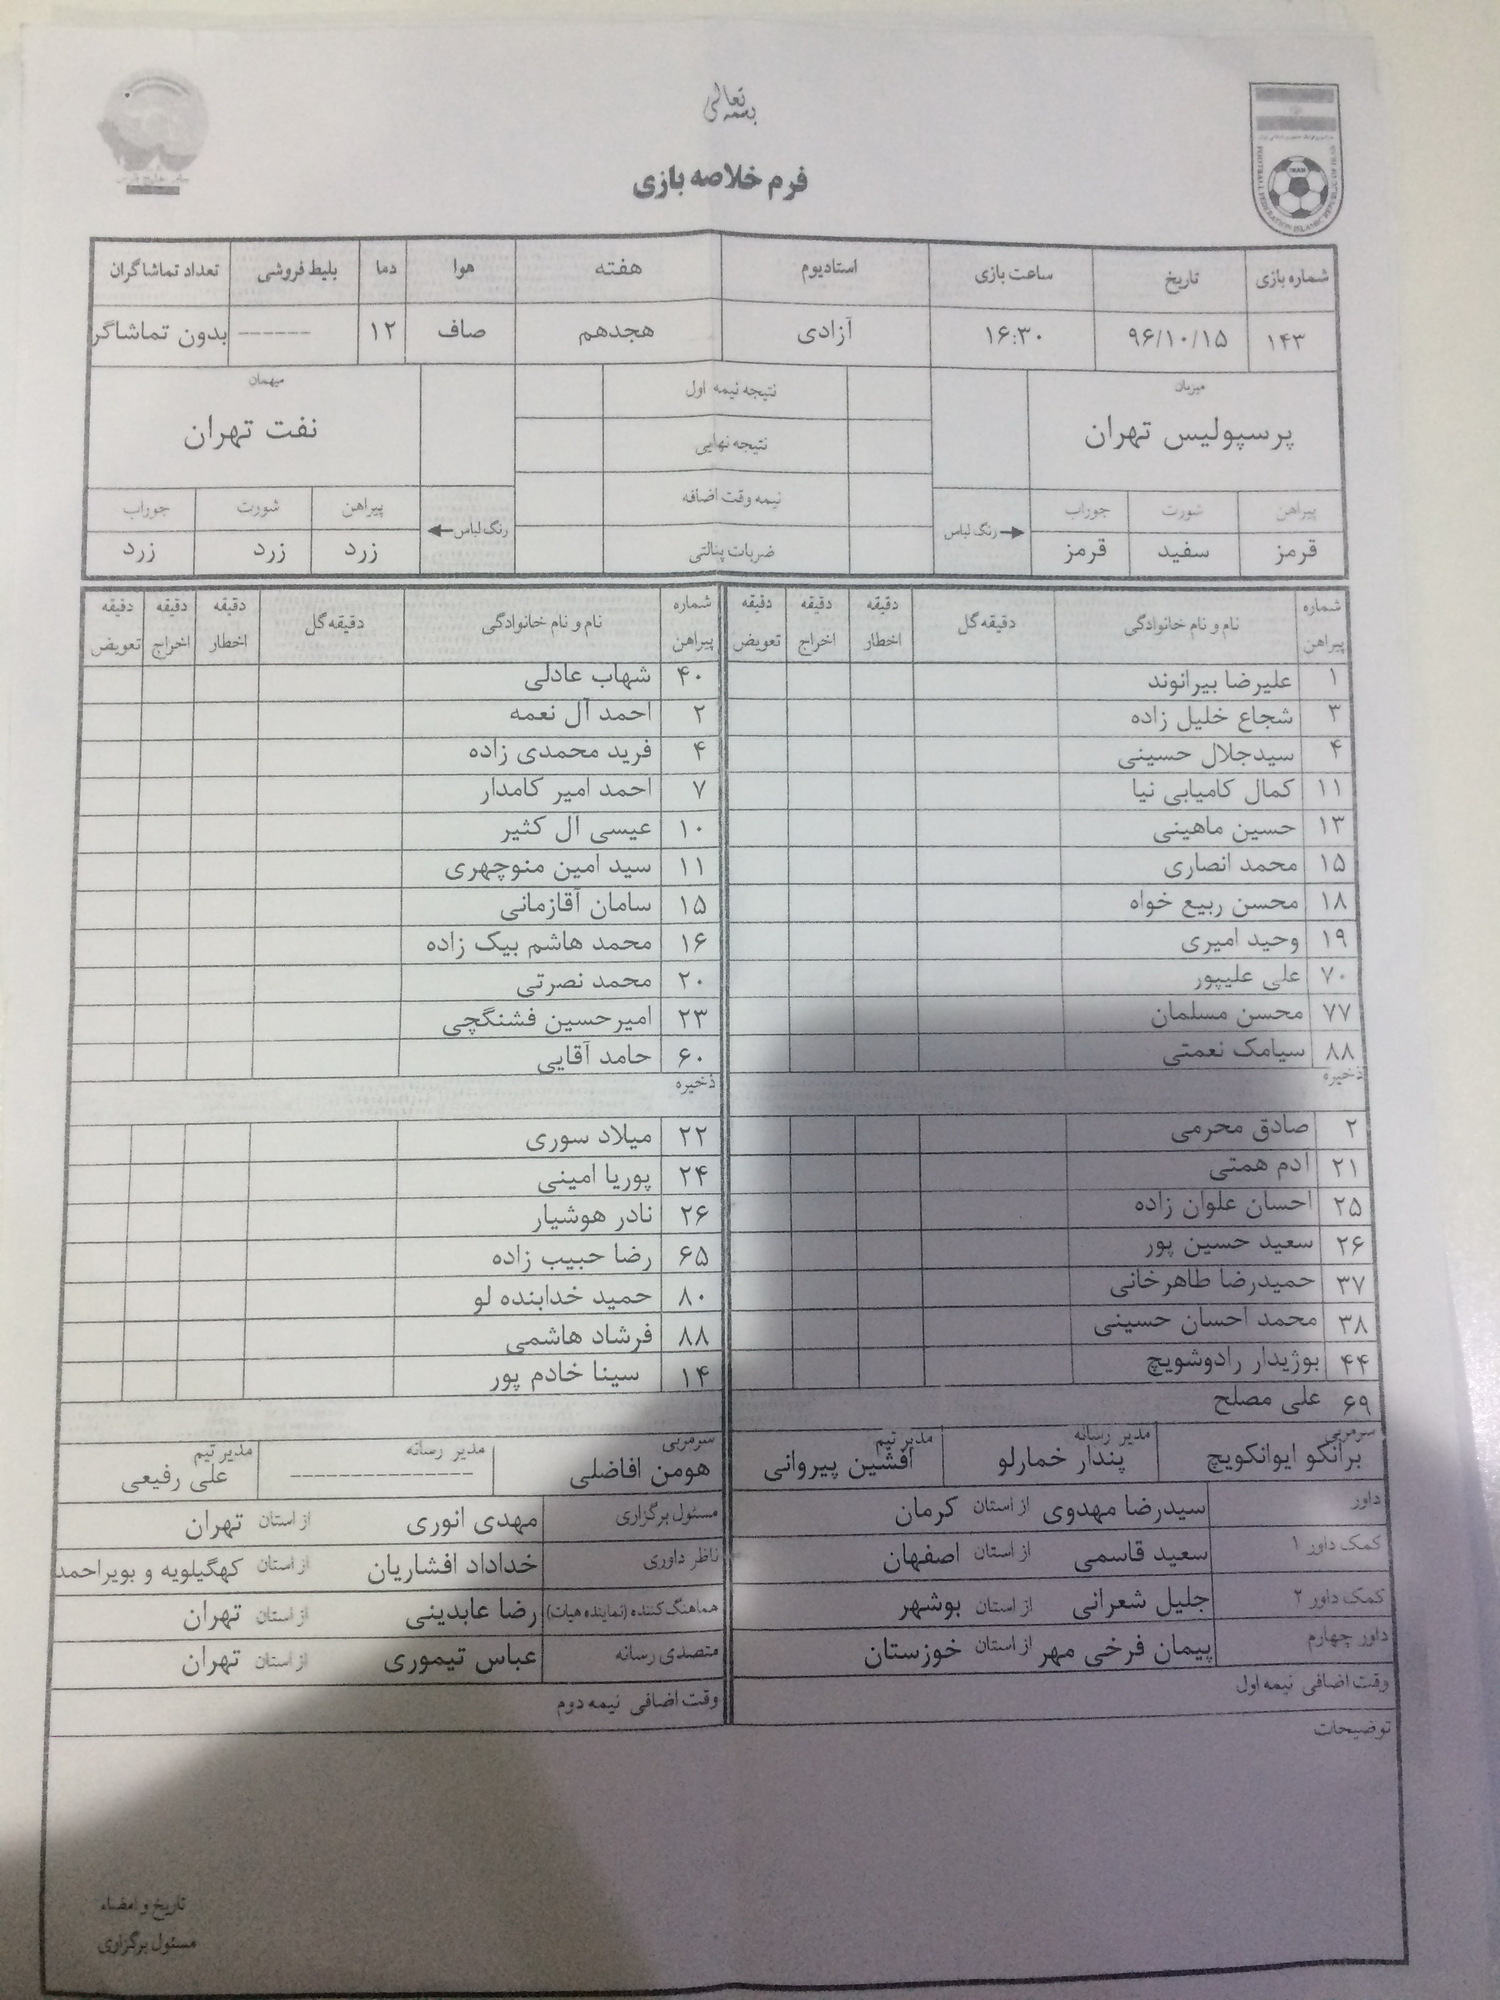 بسمه تعالی
فرم خلاصه بازی
FOOTBALL FEDERATION ISLAMIC REPUBLIC OF IRAN
IRAN
شماره بازی تاریخ ساعت بازی استادیوم هفته هوا دما بلیط فروشی تعداد تماشاگران
۱۴۳ ۹۶/۱۰/۱۵ ۱۶:۳۰ آزادی هجدهم صاف ۱۲ ------ بدون تماشاگر
میزبان نتیجه نیمه اول میهمان
پرسپولیس تهران نتیجه نهایی نفت تهران
نیمه وقت اضافه
پیراهن شورت جوراب رنگ لباس ضربات پنالتی رنگ لباس پیراهن شورت جوراب
قرمز سفید قرمز زرد زرد زرد
شماره پیراهن نام و نام خانوادگی دقیقه گل دقیقه اخطار دقیقه اخراج دقیقه تعویض شماره پیراهن نام و نام خانوادگی دقیقه گل دقیقه اخطار دقیقه اخراج دقیقه تعویض
۱ علیرضا بیرانوند ۴۰ شهاب عادلی
۳ شجاع خلیل زاده ۲ احمد آل نعمه
۴ سیدجلال حسینی ۴ فرید محمدی زاده
۱۱ کمال کامیابی نیا ۷ احمد امیر کامدار
۱۳ حسین ماهینی ۱۰ عیسی آل کثیر
۱۵ محمد انصاری ۱۱ سید امین منوچهری
۱۸ محسن ربیع خواه ۱۵ سامان آقازمانی
۱۹ وحید امیری ۱۶ محمد هاشم بیک زاده
۷۰ علی علیپور ۲۰ محمد نصرتی
۷۷ محسن مسلمان ۲۳ امیرحسین فشنگچی
۸۸ سیامک نعمتی ۶۰ حامد آقایی
ذخیره ذخیره
۲ صادق محرمی ۲۲ میلاد سوری
۲۱ آدم همتی ۲۴ پوریا امینی
۲۵ احسان علوان زاده ۲۶ نادر هوشیار
۲۶ سعید حسین پور ۶۵ رضا حبیب زاده
۳۷ حمیدرضا طاهرخانی ۸۰ حمید خدابنده لو
۳۸ محمد احسان حسینی ۸۸ فرشاد هاشمی
۴۴ بوژیدار رادوشویچ ۱۴ سینا خادم پور
۶۹ علی مصلح
سرمربی مدیر رسانه مدیر تیم سرمربی مدیر رسانه مدیر تیم
برانکو ایوانکویچ پندار خمارلو افشین پیروانی هومن افاضلی -------------- علی رفیعی
داور سیدرضا مهدوی از استان کرمان مسئول برگزاری مهدی انوری از استان تهران
کمک داور ۱ سعید قاسمی از استان اصفهان ناظر داوری خداداد افشاریان از استان کهگیلویه و بویراحمد
کمک داور ۲ جلیل شعرانی از استان بوشهر هماهنگ کننده (نماینده هیات) رضا عابدینی از استان تهران
داور چهارم پیمان فرخی مهر از استان خوزستان متصدی رسانه عباس تیموری از استان تهران
وقت اضافی نیمه اول وقت اضافی نیمه دوم
توضیحات
تاریخ و امضاء
مسئول برگزاری